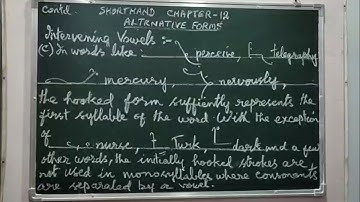 contd. SHORTHAND CHAPTER-12
ALTRNATIVE FORMS
Intervening Vowels:-
(c) In words like: perceive, telegraphy
mercury, nervously,
the hooked form suffiently represents the
first syllable of the word with the exception
of nurse, Turk, dark and a few
other words, the initially hooked strokes are
not used in monosyllables where consonants
are separated by a vowel.